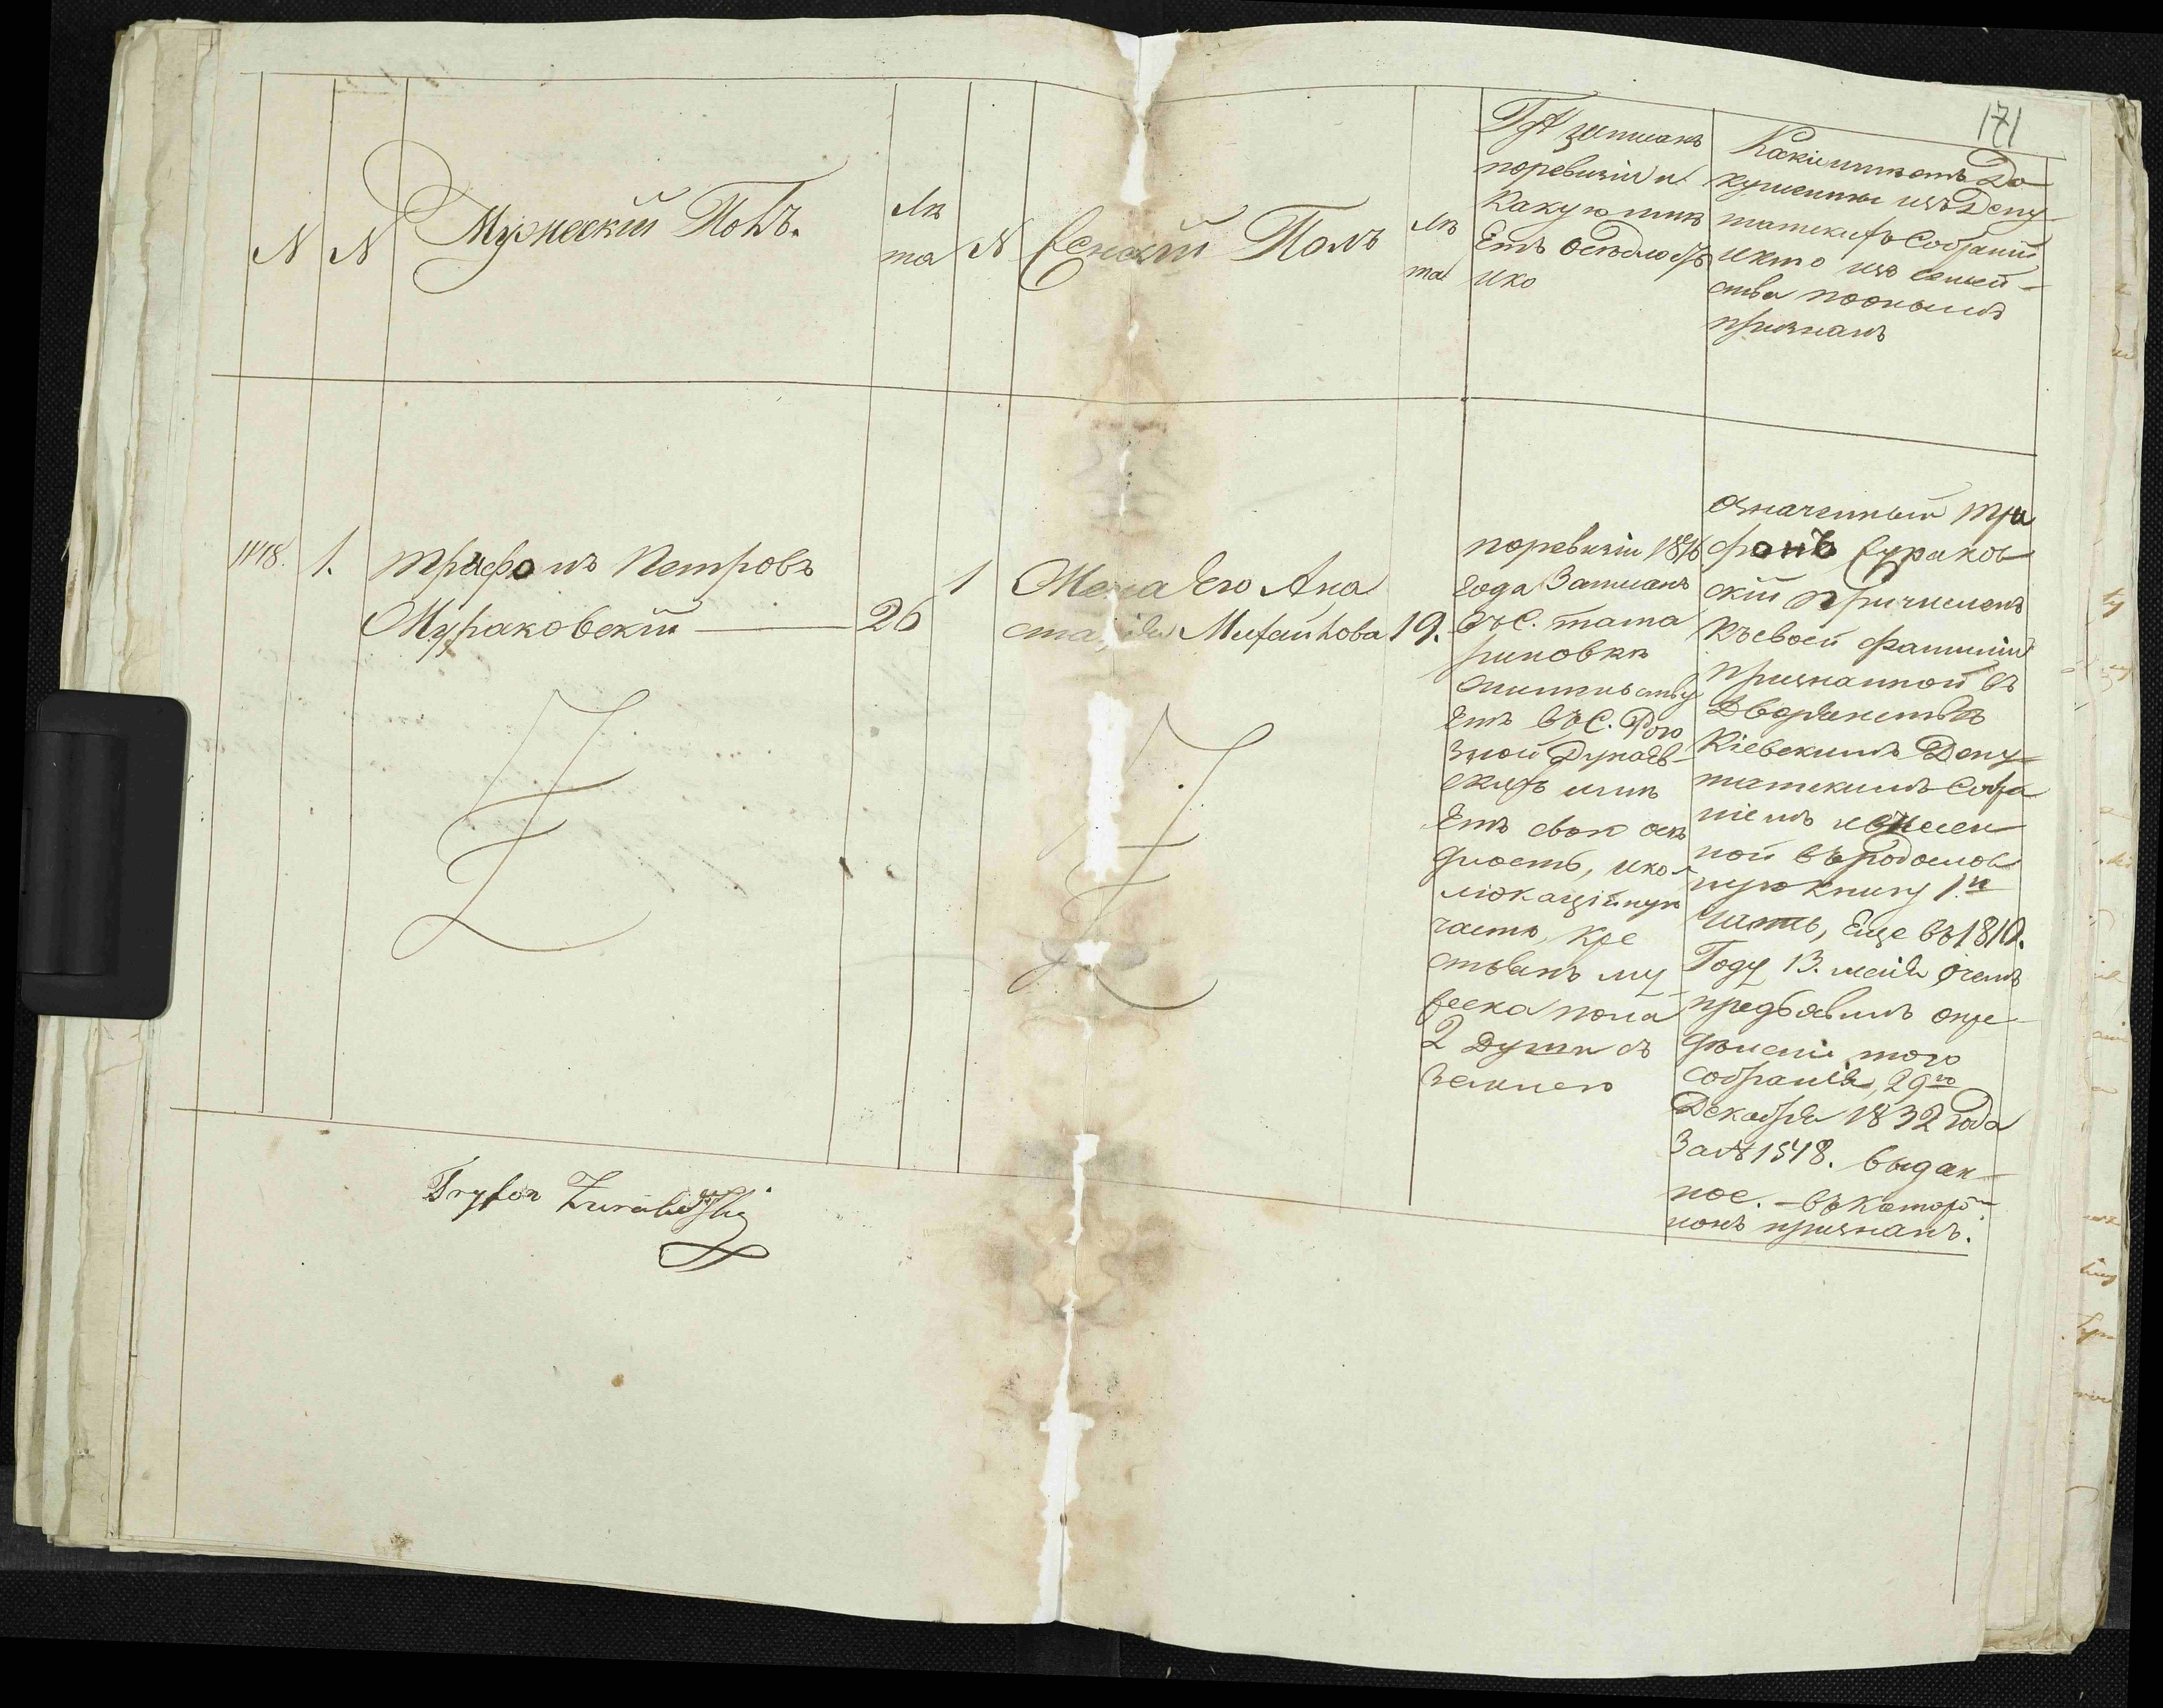 171
N
N
Мужескій Полъ.
лѣ
та
N
Женскій Полъ
лѣ
та
Гдѣ записанъ
поревизіи и
какую имѣ
етъ оседлость
ико
Какіи имѣетъ До
кументы изъ Депу
татскихъ Собраній
икто изъ семей-
ства пооныמъ
признанъ
1.
трифонъ Петровъ
Жураковскій — 26
1
Жена Его Ана
ста Михайлова 19.
поревизіи 1816
года Записанъ
въ С. тата
риновкѣ
жительству
етъ въ С.
зной Дунаев-
скихъ имѣ
етъ свою осѣ
длость, ико-
люкаційную
часть кре
стьянъ му
жеска пола
2 души съ
землею
означенный три
фонъ Жураков
скій Причисленъ
къ своей фамиліи
признанной въ
Дворянствѣ
Кіевскимъ Депу-
татскимъ Собра
ніемъ ивнесен
ной въ родослов
ную книгу 1ю
Часть, Еще въ 1819.
Году 13. маія очемъ
предъявилъ опре
дѣленіе того
собранія, 29го
Декабря 1832 года
За № 1548. выдан-
ное. - въ котором
ионъ признанъ.
Tryfon Żurakowski